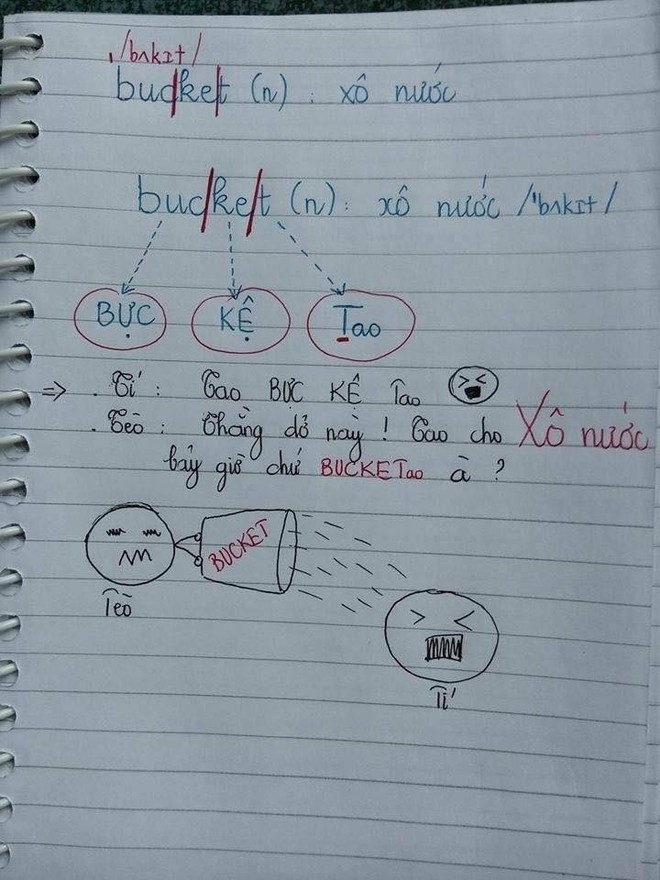 '/bʌkɪt/
bucket (n) : xô nước
bucket (n) : xô nước /'bʌkɪt/
BỰC KỆ Tao
=> . Tí : Tao BỰC KỆ Tao
. Tèo : Thằng dở này ! Tao cho Xô nước
bây giờ chứ BUCKETao à ?
BUCKET
Tèo
Tí